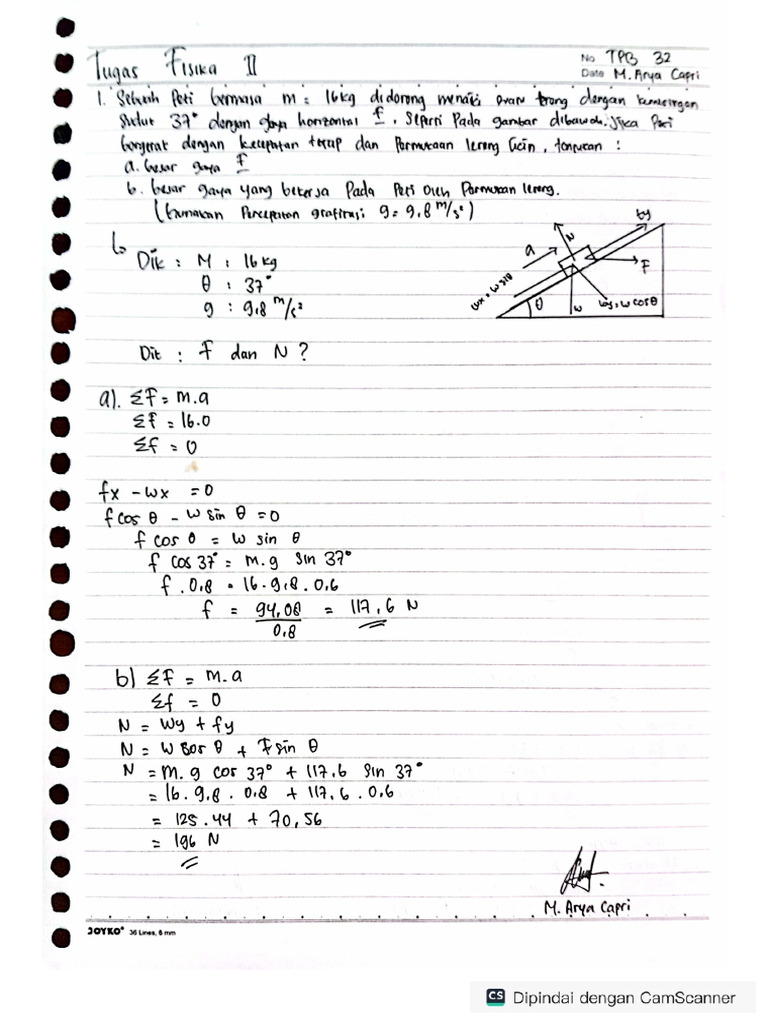 Tugas Fisika II
No TPB 32
Date M. Arya Capri
1. Sebuah Peti bermasa m = 16kg didorong menaiki lereng dengan kemiringan
sudut 37° dengan gaya horizontal f, seperti Pada gambar dibawah. Jika Peti
bergerak dengan kecepatan tetap dan Permukaan lereng licin, tentukan :
a. besar gaya f
b. besar gaya yang bekerja Pada Peti oleh Permukaan lereng.
(Gunakan Percepatan grafitasi g = 9.8 m/s²)
Dik : M : 16 kg
θ : 37°
g : 9.8 m/s²
Dit : f dan N ?
a
N
F
wx = w sin θ
θ
w
w cos θ
a). ΣF = m.a
Σf = 16.0
Σf = 0
fx - wx = 0
f cos θ - w sin θ = 0
f cos θ = w sin θ
f cos 37° = m.g sin 37°
f . 0.8 = 16 . 9.8 . 0.6
f = 94,08 / 0.8 = 117,6 N
b) ΣF = m.a
Σf = 0
N = wy + fy
N = w cos θ + F sin θ
N = m.g cos 37° + 117.6 sin 37°
= 16. 9.8 . 0.8 + 117.6 . 0.6
= 125.44 + 70,56
= 196 N
M. Arya Capri
JOYKO® 36 Lines, 6 mm
CS Dipindai dengan CamScanner